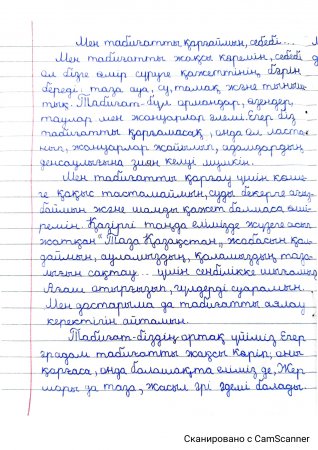 Мен табиғатты қорғаймын, себебі...
Мен табиғатты жақсы көремін, себебі
ол бізге өмір сүруге қажеттінің бәрін
береді: таза ауа, су, тамақ және тыныш-
тық. Табиғат-бұл ормандар, өзендер,
таулар мен жануарлар әлемі. Егер біз
табиғатты қорғамасақ, онда ол ласта-
нып, жануарлар жойылып, адамдардың
денсаулығына зиян келуі мүмкін.
Мен табиғатты қорғау үшін көше-
ге қоқыс тастамаймын, суды бекерге ағыз-
баймын және шамды қажет болмаса өші-
ремін. Қазіргі таңда елімізде жүзеге асып
жатқан "Таза Қазақстан" жобасын қол-
даймын, ауламыздың, қаламыздың таза-
лығын сақтау... үшін сенбілікке шығамыз.
Ағаш отырғызып, гүлдерді суарамын.
Мен достарыма да табиғатты аялау
керектігін айтамын.
Табиғат-біздің ортақ үйіміз. Егер
адам табиғатты жақсы көріп, оны
қорғаса, онда болашақта еліміз де, Жер
шары да таза, жасыл әрі әдемі болады.
Сканировано с CamScanner